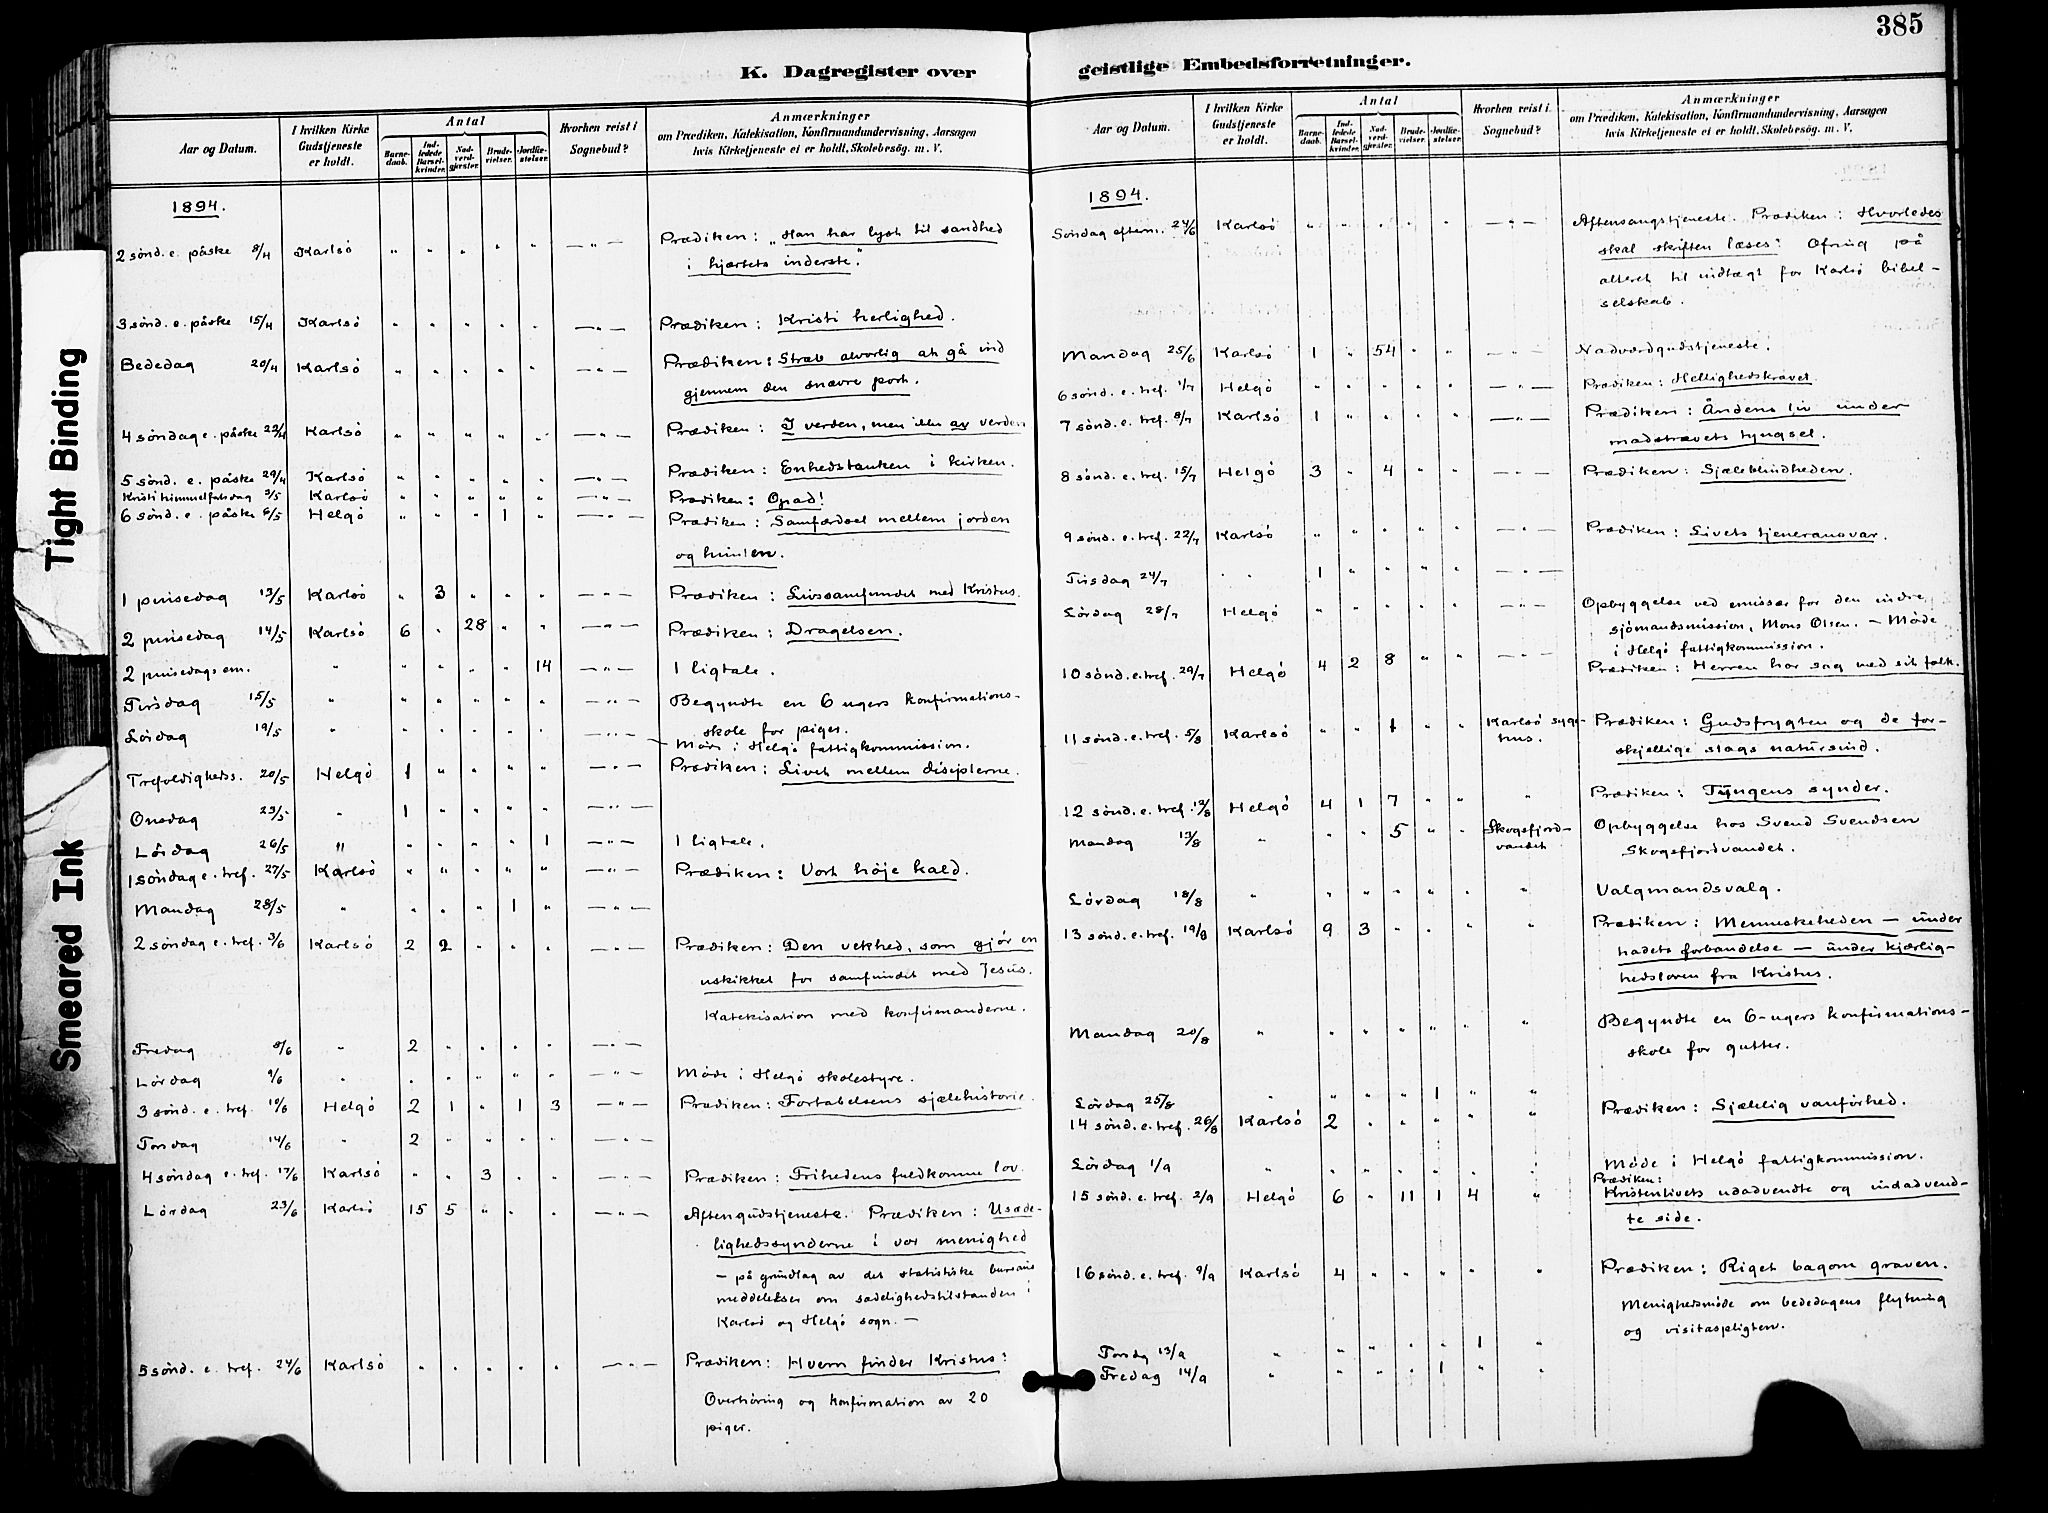 385
K. Dagregister over
geistlige Embedsforretninger.
Tight Binding
Smeared Ink
Aar og Datum.
I hvilken Kirke Gudstjeneste er holdt.
Antal
Barne-daab.
Ind-ledede Barsel-kvinder.
Nad-verd-gjester.
Brude-vielser.
Jordfæ-stelser.
Hvorhen reist i Sognebud?
Anmærkninger
om Prædiken, Katekisation, Konfirmandundervisning, Aarsagen
hvis Kirketjeneste ei er holdt, Skolebesög. m. V.
1894.
2 sönd. e. påske 8/4 Karlsö " " " " " — " — Prædiken: "Han har lyst til sandhed
i hjærtets inderste".
3 sönd. e. påske 15/4 Karlsö " " " " " — " — Prædiken: Kristi herlighed.
Bededag 20/4 Karlsö " " " " " — " — Prædiken: Stræb alvorlig at gå ind
gjennem den snævre port.
4 söndag e. påske 22/4 Karlsö " " " " " — " — Prædiken: I verden, men ikke av verden
5 sönd. e. påske 29/4 Karlsö " " " " " — " — Prædiken: Enhedstanken i kirken.
Kristi himmelfartsdag 3/5 Karlsö " " " " " — " — Prædiken: Opad!
6 sönd. e. påske 6/5 Helgö " " " 1 " — " — Prædiken: Samfærdsel mellem jorden
og himlen.
1 pinsedag 13/5 Karlsö " 3 " " " — " — Prædiken: Livssamfundet med Kristus.
2 pinsedag 14/5 Karlsö 6 " 28 " " — " — Prædiken: Dragelsen.
2 pinsedags em. " " " " " 14 — " — 1 ligtale.
Tirsdag 15/5 " " " " " " — " — Begyndte en 6 ugers konfirmations-
skole for piger.
Lördag 19/5 " " " " " " — " — Möde i Helgö fattigkommission.
Trefoldigheds. 20/5 Helgö 1 " " " " — " — Prædiken: Livet mellem disiplerne.
Onsdag 23/5 " 1 " " " " — " —
Lördag 26/5 " " " " " 1 — " — 1 ligtale.
1 söndag e. tref. 27/5 Karlsö " " " " " — " — Prædiken: Vort höje kald.
Mandag 28/5 " " " " 1 " — " —
2 söndag e. tref. 3/6 Karlsö 2 2 " " " — " — Prædiken: Den vekhed, som gjör en
uskikket for samfundet med Jesus.
Katekisation med konfirmanderne.
Fredag 8/6 " 2 " " " " — " —
Lördag 9/6 " " " " " " — " — Möde i Helgö skolestyre.
3 sönd. e. tref. 10/6 Helgö 2 1 " 1 3 — " — Prædiken: Fortabelsens sjælehistorie.
Torsdag 14/6 " 2 " " " " — " —
4 söndag e. tref. 17/6 Karlsö " " 3 " " — " — Prædiken: Frihedens fuldkomne lov.
Lördag 23/6 Karlsö 15 5 " " " — " — Aftengudstjeneste. Prædiken: Usæde-
lighedssynderne i vor menighed
— på grundlag av det statistiske
meddelelser om sædelighedstilstanden i
Karlsö og Helgö sogn. —
5 sönd. e. tref. 24/6 Karlsö " " " " " — " — Prædiken: Hvem finder Kristus?
Overhöring og konfirmation av 20
piger.
Aar og Datum.
I hvilken Kirke Gudstjeneste er holdt.
Antal
Barne-daab.
Ind-ledede Barsel-kvinder.
Nad-verd-gjester.
Brude-vielser.
Jordfæ-stelser.
Hvorhen reist i Sognebud?
Anmærkninger
om Prædiken, Katekisation, Konfirmandundervisning, Aarsagen
hvis Kirketjeneste ei er holdt, Skolebesög. m. V.
1894.
Söndag eftem. 24/6 Karlsö " " " " " — " — Aftensangstjeneste. Prædiken: Hvorledes
skal skriften læses? Ofring på
alteret til indtægt for Karlsö bibel-
selskab.
Mandag 25/6 Karlsö 1 " 54 " " — " — Nadværdgudstjeneste.
6 sönd. e. tref. 1/7 Helgö " " " " " — " — Prædiken: Hellighedskravet.
7 sönd. e. tref. 8/7 Karlsö 1 " " " " — " — Prædiken: Åndens liv under
madstrævets tyngsel.
8 sönd. e. tref. 15/7 Helgö 3 " 4 " " — " — Prædiken: Sjæleblindheden.
9 sönd. e. tref. 22/7 Karlsö " " " " " — " — Prædiken: Livets tjeneransvar.
Tirsdag 24/7 " " 1 " " " " — " —
Lördag 28/7 Helgö " " " " " — " — Opbyggelse ved emissær for den indre
sjömandsmission, Mons Olsen. — Möde
i Helgö fattigkommission.
10 sönd. e. tref. 29/7 Helgö 4 2 8 " " — " — Prædiken: Herren har sag med sit folk.
11 sönd. e. tref. 5/8 Karlsö " " 1 " " Karlsö syge-hus. Prædiken: Gudsfrygten og de for-
skjellige slags natursind.
12 sönd. e. tref. 12/8 Helgö 4 1 7 " " " Prædiken: Tungens synder.
Mandag 13/8 " " " 5 " " Skogsfjord-vandet Opbyggelse hos Svend Svendsen
Skogsfjordvandet.
Lördag 18/8 " " " " " " " Valgmandsvalg.
13 sönd. e. tref. 19/8 Karlsö 9 3 " " " " Prædiken: Menneskeheden — under
hadets forbandelse — under kjærlig-
hedsloven fra Kristus.
Mandag 20/8 " " " " " " " Begyndte en 6-ugers konfirmations-
skole for gutter.
Lördag 25/8 " " " 1 " "
14 sönd. e. tref. 26/8 Karlsö 2 " " " " " Prædiken: Sjælelig vanförhed.
Lördag 1/9 " " " " " " " Möde i Helgö fattigkommission.
15 sönd. e. tref. 2/9 Helgö 6 " 11 1 4 " Prædiken:
Kristenlivets udadvendte og indadvend-
te side.
16 sönd. e. tref. 9/9 Karlsö 4 " " " " " Prædiken: Riget bagom graven.
Menighedsmöde om bededagens flytning
og visitaspligten.
Torsdag 13/9 " " " " " 1 "
Fredag 14/9 " " " " 1 " "